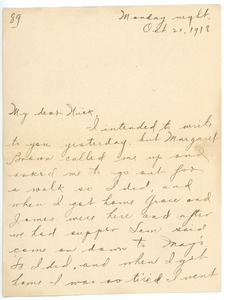 89
Monday night.
Oct 21, 1918
My dear Nick,
I intended to write
to you yesterday but Margaret
Brown called me up and
asked me to go out for
a walk so I did, and
when I got home Grace and
James were here and after
we had supper Sam said
come on down to May's
So I did, and when I got
home I was so tired I went